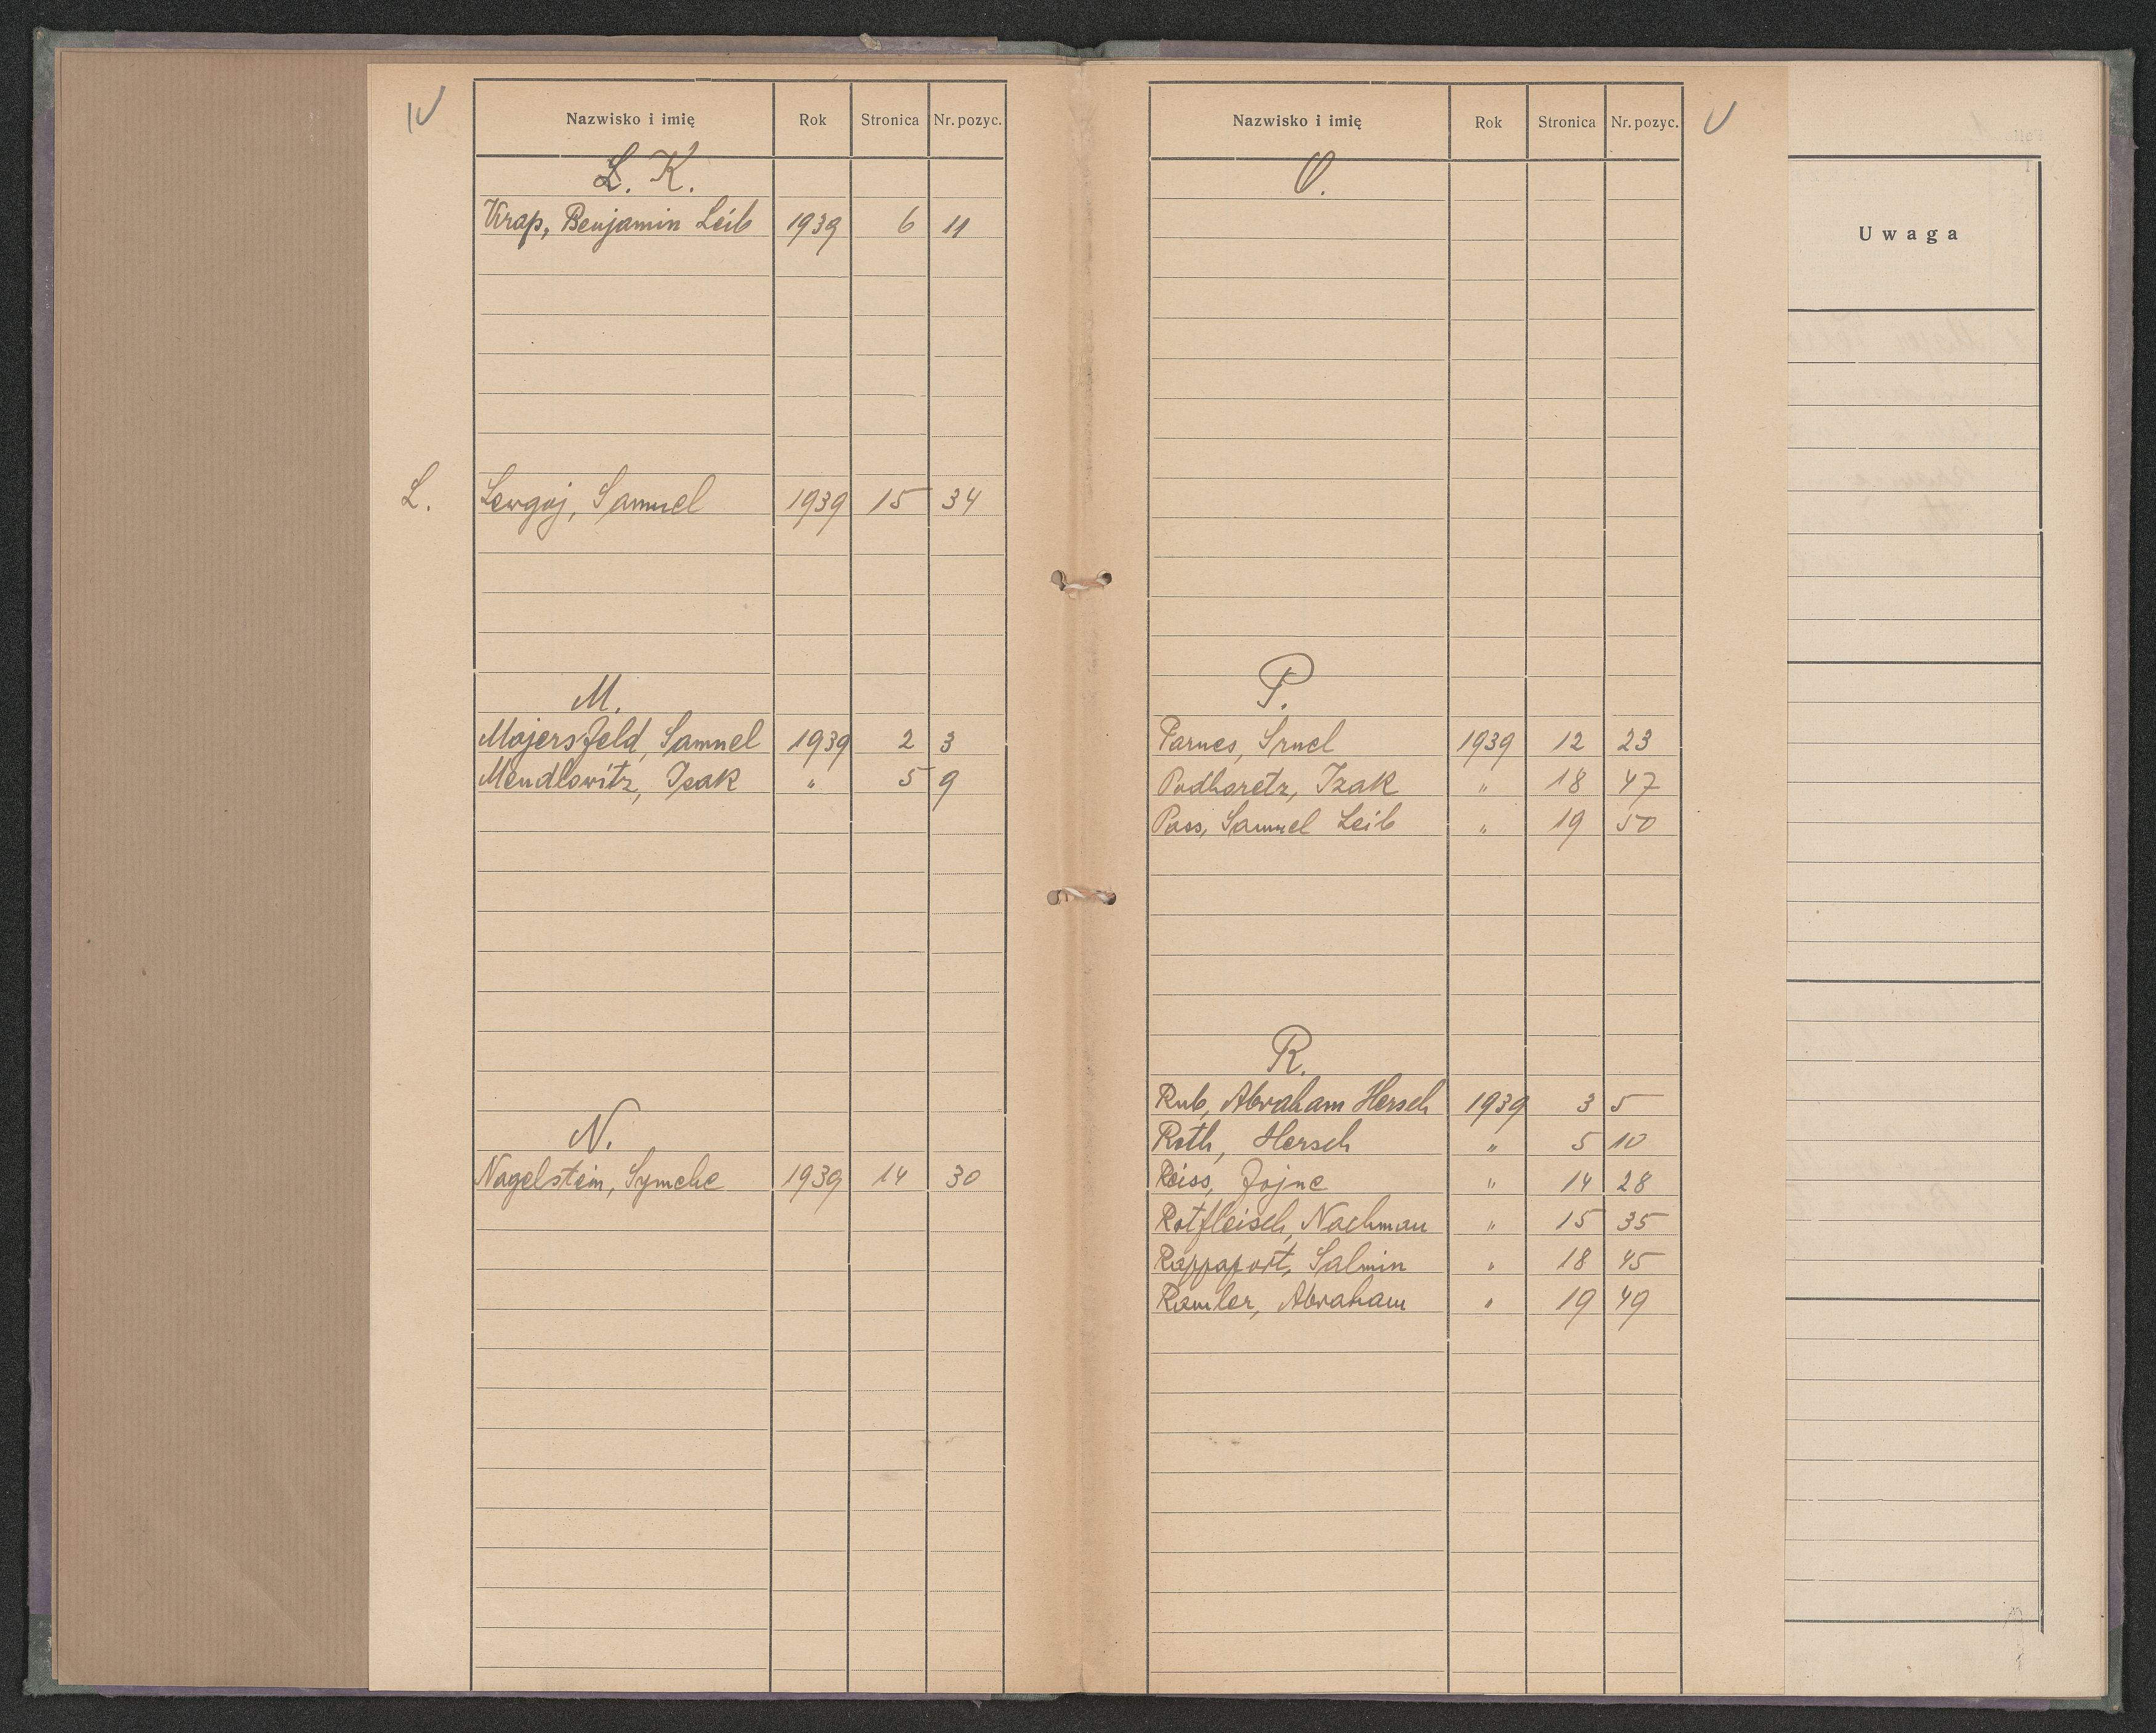 IV
Nazwisko i imię Rok Stronica Nr. pozyc.
L. K.
Krap, Benjamin Leib 1939 6 11
L. Lewgoj, Samuel 1939 15 34
M.
Majersfeld, Samuel 1939 2 3
Mendlowitz, Izak " 5 9
N.
Nagelstein, Symche 1939 14 30
V
Nazwisko i imię Rok Stronica Nr. pozyc.
O.
P.
Parnes, Srul 1939 12 23
Podharetz, Izak " 18 47
Pass, Samuel Leib " 19 50
R.
Rub, Abraham Hersch 1939 3 5
Roth, Hersch " 5 10
Reiss, Jojne " 14 28
Rotfleisch, Nachman " 15 35
Rappaport, Salmin " 18 45
Ramler, Abraham " 19 49
Uwaga